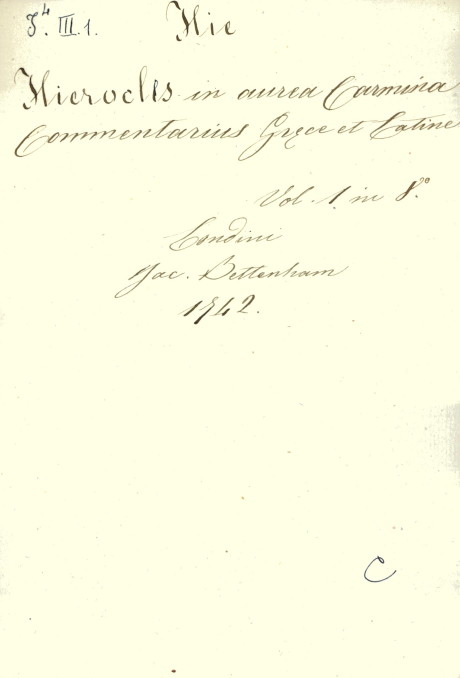 J⁴. III. 1.
Hie
Hierocles in aurea Carmina
Commentarius Gręce et Latine
Vol. 1. in 8.º
Londini
Jac. Bettenham
1742.
C